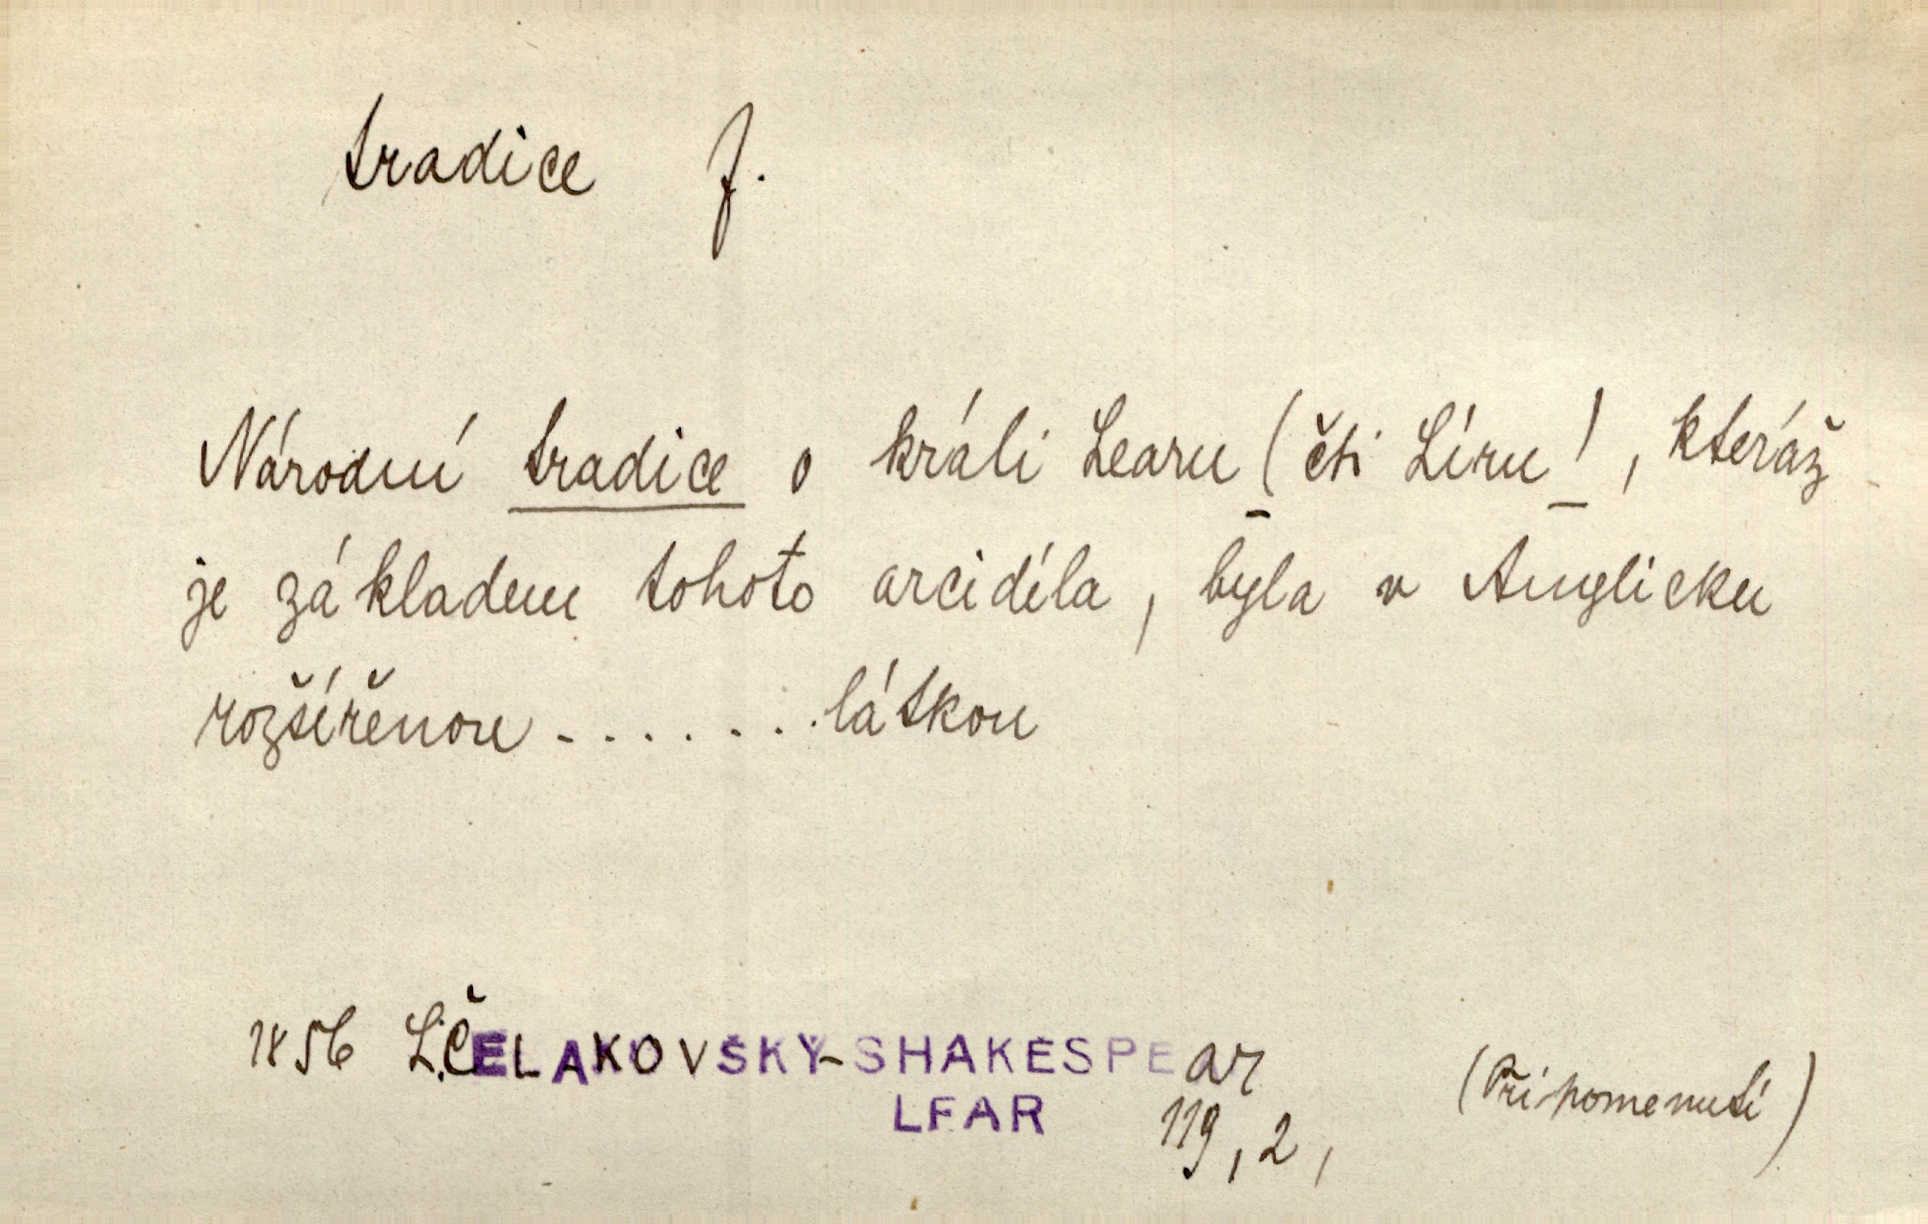 tradice f.
Národní tradice o králi Learu (čti Líru), kteráž
je základem tohoto arcidíla, byla v Anglicku
rozšířenou - . . . . . . látkou
1856 L.ČELAKOVSKY-SHAKESPEar
LEAR 119,2, (Připomenutí)